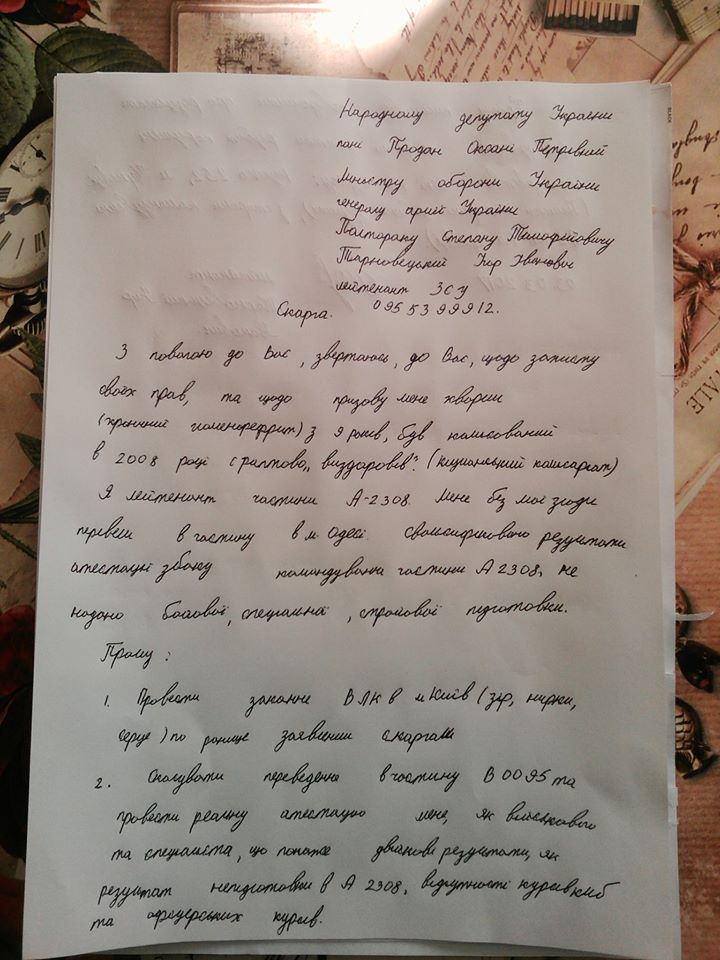 Народному депутату України
пані Продан Оксані Петрівній
Міністру оборони України
генералу армії України
Полтораку Степану Тимофійовичу
Тарновецький Ігор Іванович
лейтенант ЗСУ
Скарга. 0955399912.
З повагою до Вас, звертаюсь, до Вас, щодо захисту
своїх прав, та щодо призову мене хворим
(хронічний гломерофрит) з 9 років, був комісований
в 2008 році і раптово „виздоровів". (Кіцманський комісаріат)
Я лейтенант частини А-2308. Мене без моєї згоди
перевели в частину в м. Одесі. Сфальсифіковано результати
атестації з боку командування частини А 2308, не
надано бойової, спеціальної, стройової підготовки.
Прошу:
1. Провести законне ВЛК в м Київ (зір, нирки,
серце) по раніше заявленим скаргам
2. Скасувати переведення в частину В 0095 та
провести реальну атестацію мене, як військового
та спеціаліста, що покаже двійкові результати, як
результат непідготовки в А 2308, відсутності курсів
та офіцерських курсів.